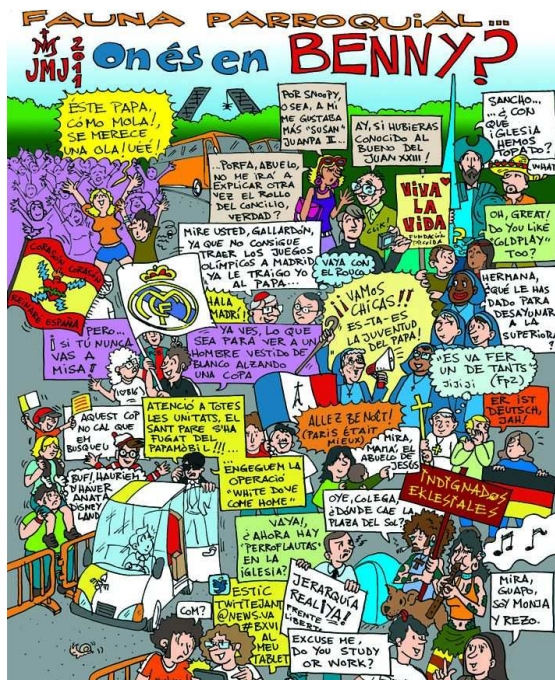 FAUNA PARROQUIAL...
JMJ 2011
On és en BENNY?
ÉSTE PAPA,
CÓMO MOLA!,
SE MERECE
UNA OLA! UÉÉ!
POR SNOOPY,
O SEA, A MÍ
ME GUSTABA
MÁS "SUSAN"
JUANPA II.
AY, SI HUBIERAS
CONOCIDO AL
BUENO DEL
JUAN XXIII!
SANCHO...
...¿ CON
QUE
IGLESIA
HEMOS
TOPADO?
WHAT
...PORFA, ABUELO,
NO ME IRÁ A
EXPLICAR OTRA
VEZ EL ROLLO
DEL CONCILIO,
VERDAD?
CLIK!
VIVA
LA
VIDA
FUNDACIÓN
OH, GREAT!
DO YOU LIKE
"COLDPLAY"
TOO?
MIRE USTED, GALLARDÓN,
YA QUE NO CONSIGUE
TRAER LOS JUEGOS
OLÍMPICOS A MADRID,
YA LE TRAIGO YO
AL PAPA...
VAYA CON
EL ROUCO
CORAZÓN CORAZÓN
REINARÉ ESPAÑA!
HALA
MADRÍ!
¡¡VAMOS
CHICAS!!
ES-TA-ES
LA JUVENTUD
DEL PAPA!
HERMANA,
¿QUÉ LE HAS
DADO PARA
DESAYUNAR
A LA
SUPERIORA?
PERO...
¡ SI TÚ NUNCA
VAS A
MISA!
YA VES, LO QUE
SEA PARA VER A UN
HOMBRE VESTIDO DE
BLANCO ALZANDO
UNA COPA
"ES VA FER
UN DE TANTS"
jijiji (Fp2)
AQUEST COP
NO CAL QUE
EM
BUSQUEU
ATENCIÓ A TOTES
LES UNITATS, EL
SANT PARE S'HA
FUGAT DEL
PAPAMÒBIL!!!...
ALLEZ BENOÎT!
(PARIS ÉTAIT
MIEUX)
ER IST
DEUTSCH,
JAH!
MIRA,
MAMÁ, EL
ABUELO DE
JESÚS
BUF!, HAURÍEM
D'HAVER
ANAT A
DISNEY
LAND
ENGEGUEM LA
OPERACIÓ
"WHITE DOVE
COME HOME"
INDIGNADOS
EKLESIALES
OYE, COLEGA,
¿DÓNDE CAE LA
PLAZA DEL SOL?
VAYA!,
¿ AHORA HAY
"PERROFLAUTAS"
EN LA
IGLESIA?
COM?
ESTIC
TWITTEJANT
@NEWS.VA
#BXVI
AL
MEU
TABLET
JERARQUÍA
REAL ¡YA!
FRENTE
MIRA,
GUAPO,
SOY MONJA
Y REZO.
EXCUSE ME,
DO YOU STUDY
OR WORK?